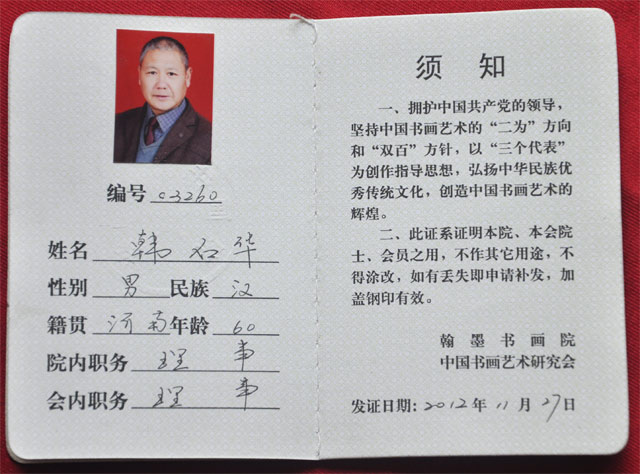 编号 c3260
姓名 韩石华
性别 男 民族 汉
籍贯 济南 年龄 60
院内职务 理 事
会内职务 理 事
须 知
一、拥护中国共产党的领导，
坚持中国书画艺术的“二为”方向
和“双百”方针，以“三个代表”
为创作指导思想，弘扬中华民族优
秀传统文化，创造中国书画艺术的
辉煌。
二、此证系证明本院、本会院
士、会员之用，不作其它用途，不
得涂改，如有丢失即申请补发，加
盖钢印有效。
翰墨书画院
中国书画艺术研究会
发证日期：2012年11月27日